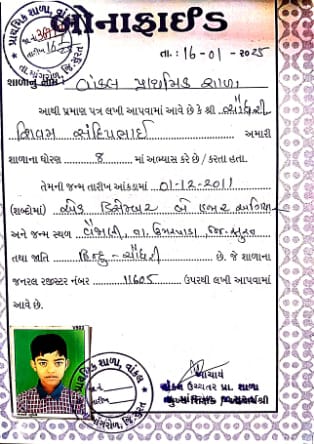 બોનાફાઈડ
પ્રાથમિક શાળા, વાંકલ
તા. માંગરોળ, જિ. સુરત
તા. : 16-01-2025
શાળાનું નામ : વાંકલ પ્રાથમિક શાળા
આથી પ્રમાણ પત્ર લખી આપવામાં આવે છે કે શ્રી ચૌધરી
શિવમ સંદિપભાઈ અમારી
શાળાના ધોરણ 8 માં અભ્યાસ કરે છે / કરતા હતા.
તેમની જન્મ તારીખ આંકડામાં 01-12-2011
(શબ્દોમાં) એક ડિસેમ્બર બે હજાર અગિયાર
અને જન્મ સ્થળ તા. ઉમરપાડા, જિ. સુરત
તથા જાતિ હિન્દુ - ચૌધરી છે. જે શાળાના
જનરલ રજીસ્ટર નંબર 11605 ઉપરથી લખી આપવામાં
આવે છે.
પ્રાથમિક શાળા, વાંકલ
તા. માંગરોળ, જિ. સુરત
આચાર્ય
વાંકલ ઉચ્ચતર પ્રા. શાળા